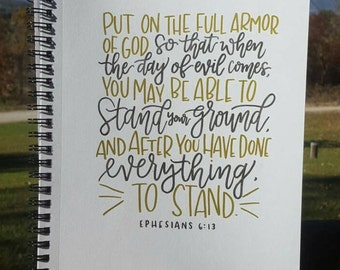 PUT ON THE FULL ARMOR
OF GOD, so that when
the day of evil comes,
YOU MAY BE ABLE TO
Stand your Ground,
AND AFTER YOU HAVE DONE
everything,
TO STAND.
EPHESIANS 6:13